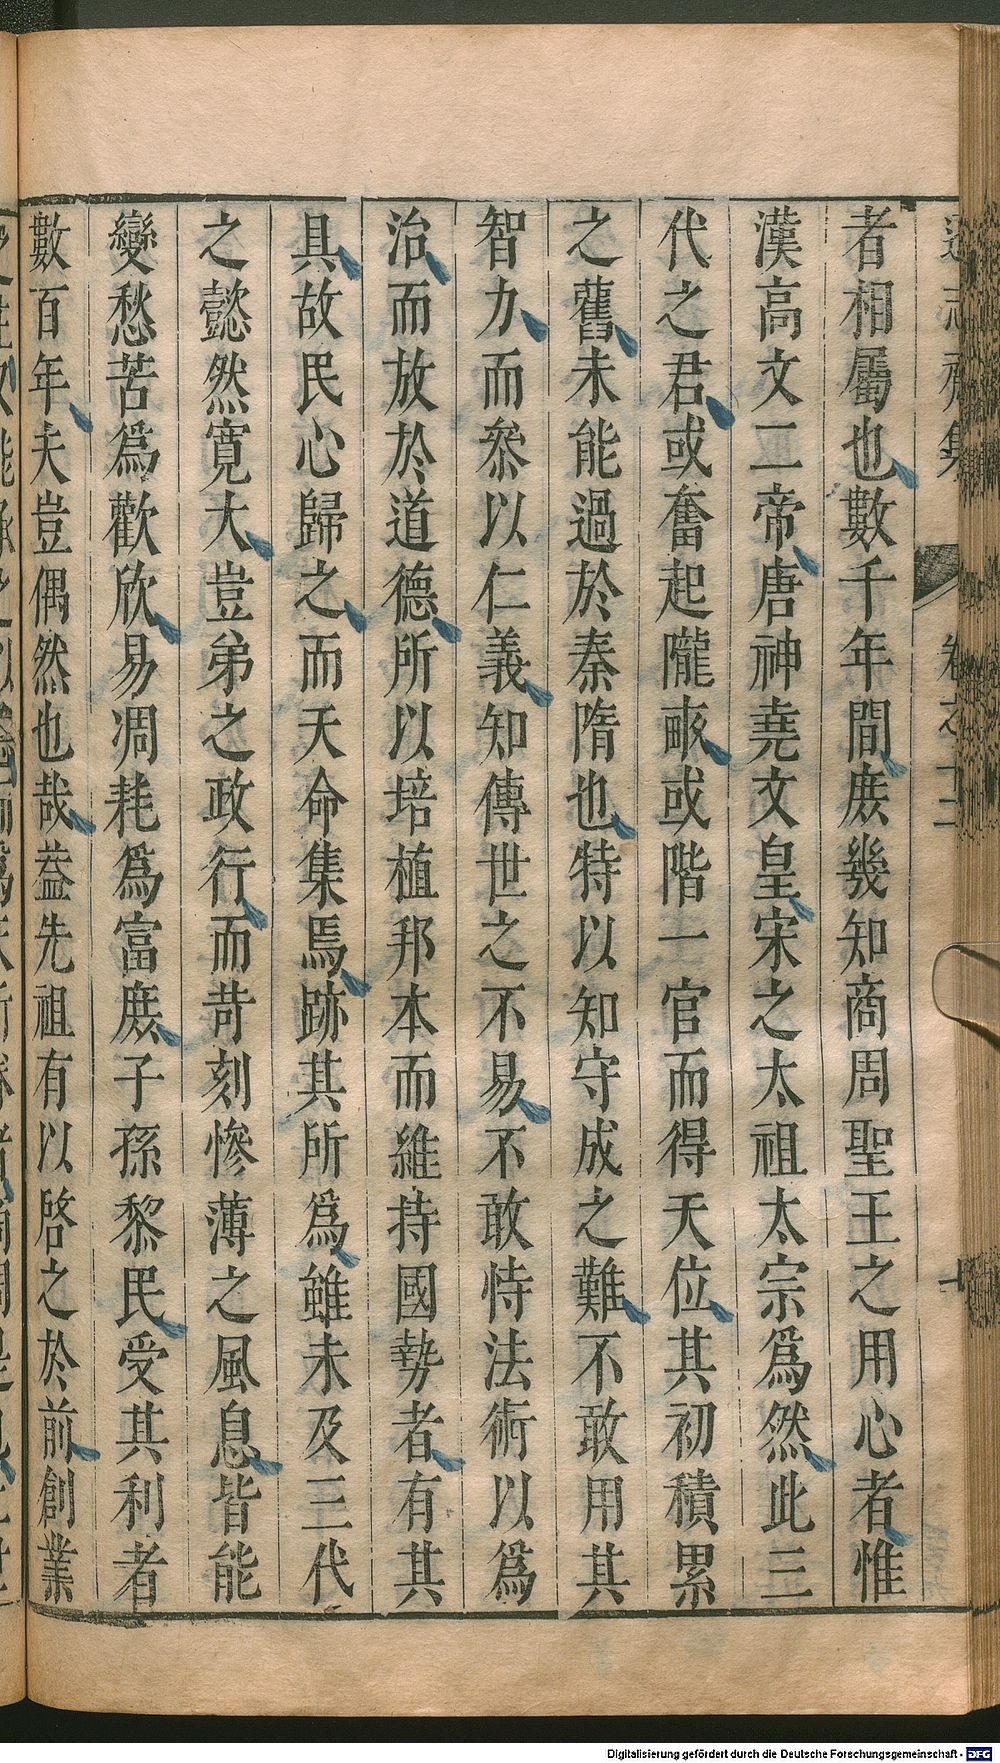 者相屬也數千年間庶幾知商周聖王之用心者惟
漢高文二帝唐神堯文皇宋之太祖太宗爲然此三
代之君或奮起隴畝或階一官而得天位其初積累
之舊未能過於秦隋也特以知守成之難不敢用其
智力而叅以仁義知傳世之不易不敢恃法術以爲
治而放於道德所以培植邦本而維持國勢者有其
具故民心歸之而天命集焉跡其所爲雖未及三代
之懿然寬大豈弟之政行而苛刻慘薄之風息皆能
變愁苦爲歡欣易凋耗爲富庶子孫黎民受其利者
數百年夫豈偶然也哉益先祖有以啓之於前創業
卷之十二
Digitalisierung gefördert durch die Deutsche Forschungsgemeinschaft - DFG